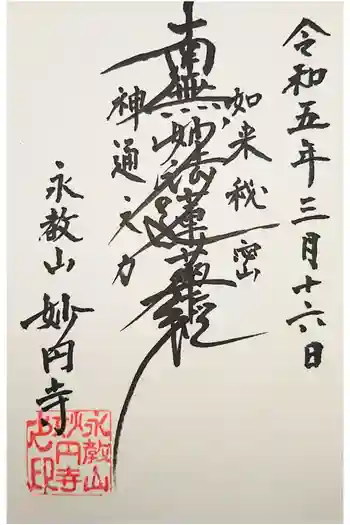 令和五年三月十六日
如来秘密
南無妙法蓮華経
神通之力
永教山
妙円寺
永教山
妙円寺
之印